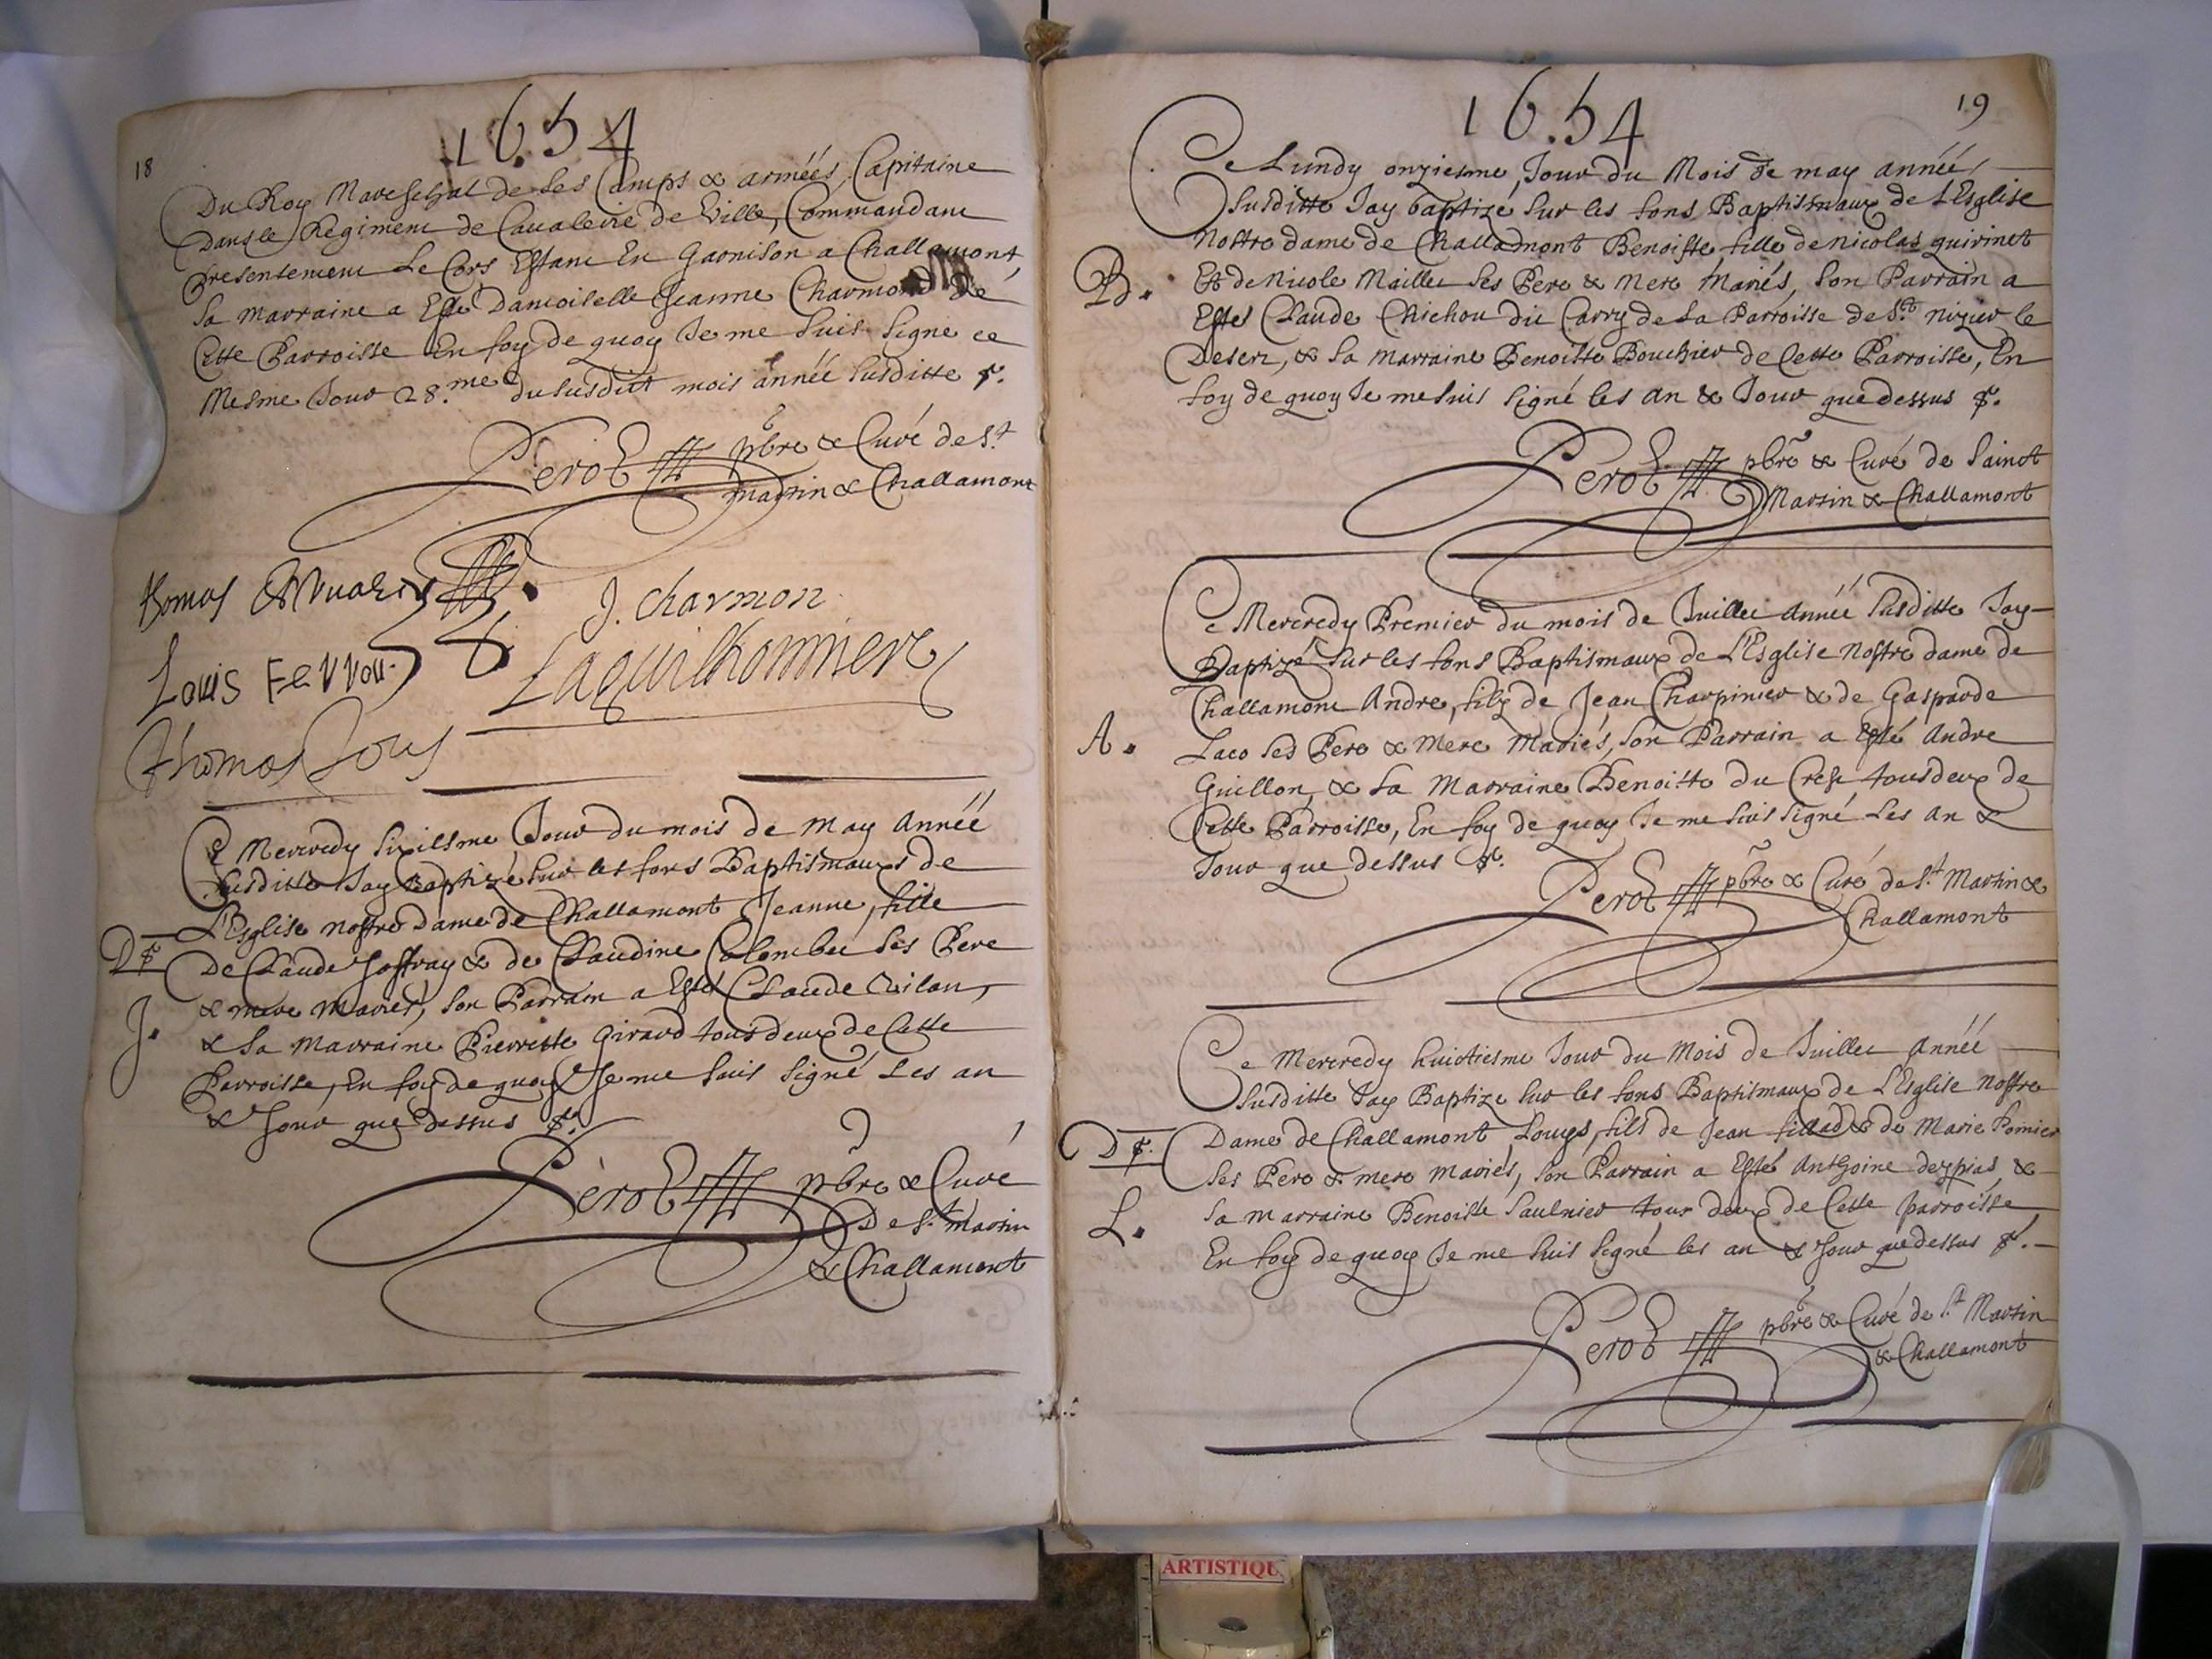 18
1654
Du Roy Mareschal de ses Camps & armées, Capitaine
Dans le Regiment de Cavalerie de Ville, Commandant
presentement Le Cors Estant En Garnison a Challamont,
sa marraine a Esté Damoiselle Jeanne Charmon de
Cette Parroisse En foy de quoy Je me suis signé ce
Mesme Jour 28.me du susdit mois année susditte
Perot pbre & Curé de S.t
martin & Challamont
Thomas
J. Charmon
Louis Ferrou
Laquilhonniere
Thomas
Ce Mercredy sixiesme Jour du mois de May Année
susditte Jay Baptizé sur les fons Baptismaux de
L'Esglise nostre Dame de Challamont Jeanne, fille
De Claude Joffray & de Claudine Colombet ses Pere
& mere Mariés, son Parrain a Esté Claude Vilan,
& sa marraine Pierrette Girard tous deux de Cette
Parroisse, En foy de quoy Je me suis signé Les an
& Jour que dessus
J.
Perot pbre & Curé
De S.t martin
& Challamont
19
1654
Ce Lundy onziesme, Jour du Mois de may année
susditte Jay baptizé sur les fons Baptismaux de L'Esglise
Nostre dame de Challamont Benoiste fille de nicolas quirinet
Et de Nicole Maillet ses Pere & Mere Mariés, son Parrain a
Esté Claude Chichou du Carry de la Parroisse de S.t nizier le
Desert, & sa marraine Benoiste Bouchier de Cette Parroisse, En
foy de quoy Je me suis signé les an & Jour que dessus
B.
Perot pbre & Curé de Sainct
Martin & Challamont
Ce Mercredy Premier du mois de Juillet Année susditte Jay
Baptizé sur les fons Baptismaux de L'Esglise Nostre dame de
Challamont Andre, filz de Jean Charpinier & de Gasparde
A. Laco ses Pere & Mere Mariés, son Parrain a Esté Andre
Guillon, & sa Marraine Benoitte du Crest tous deux de
Cette Parroisse, En foy de quoy Je me suis signé Les an &
Jour que dessus
Perot pbre & Curé de S.t Martin &
Challamont
Ce Mercredy huictiesme Jour du Mois de Juillet Année
susditte Jay Baptizé sur les fons Baptismaux de L'Esglise Nostre
Dame de Challamont Louys, fils de Jean fillad & de Marie Pomier
ses Pere & mere mariés, son Parrain a Esté Anthoine despias &
sa marraine Benoiste Saulnier tous deux de Cette parroisse
En foy de quoy Je me suis signé les an & Jour que dessus
L.
Perot pbre & Curé de S.t Martin
& Challamont
ARTISTIQU